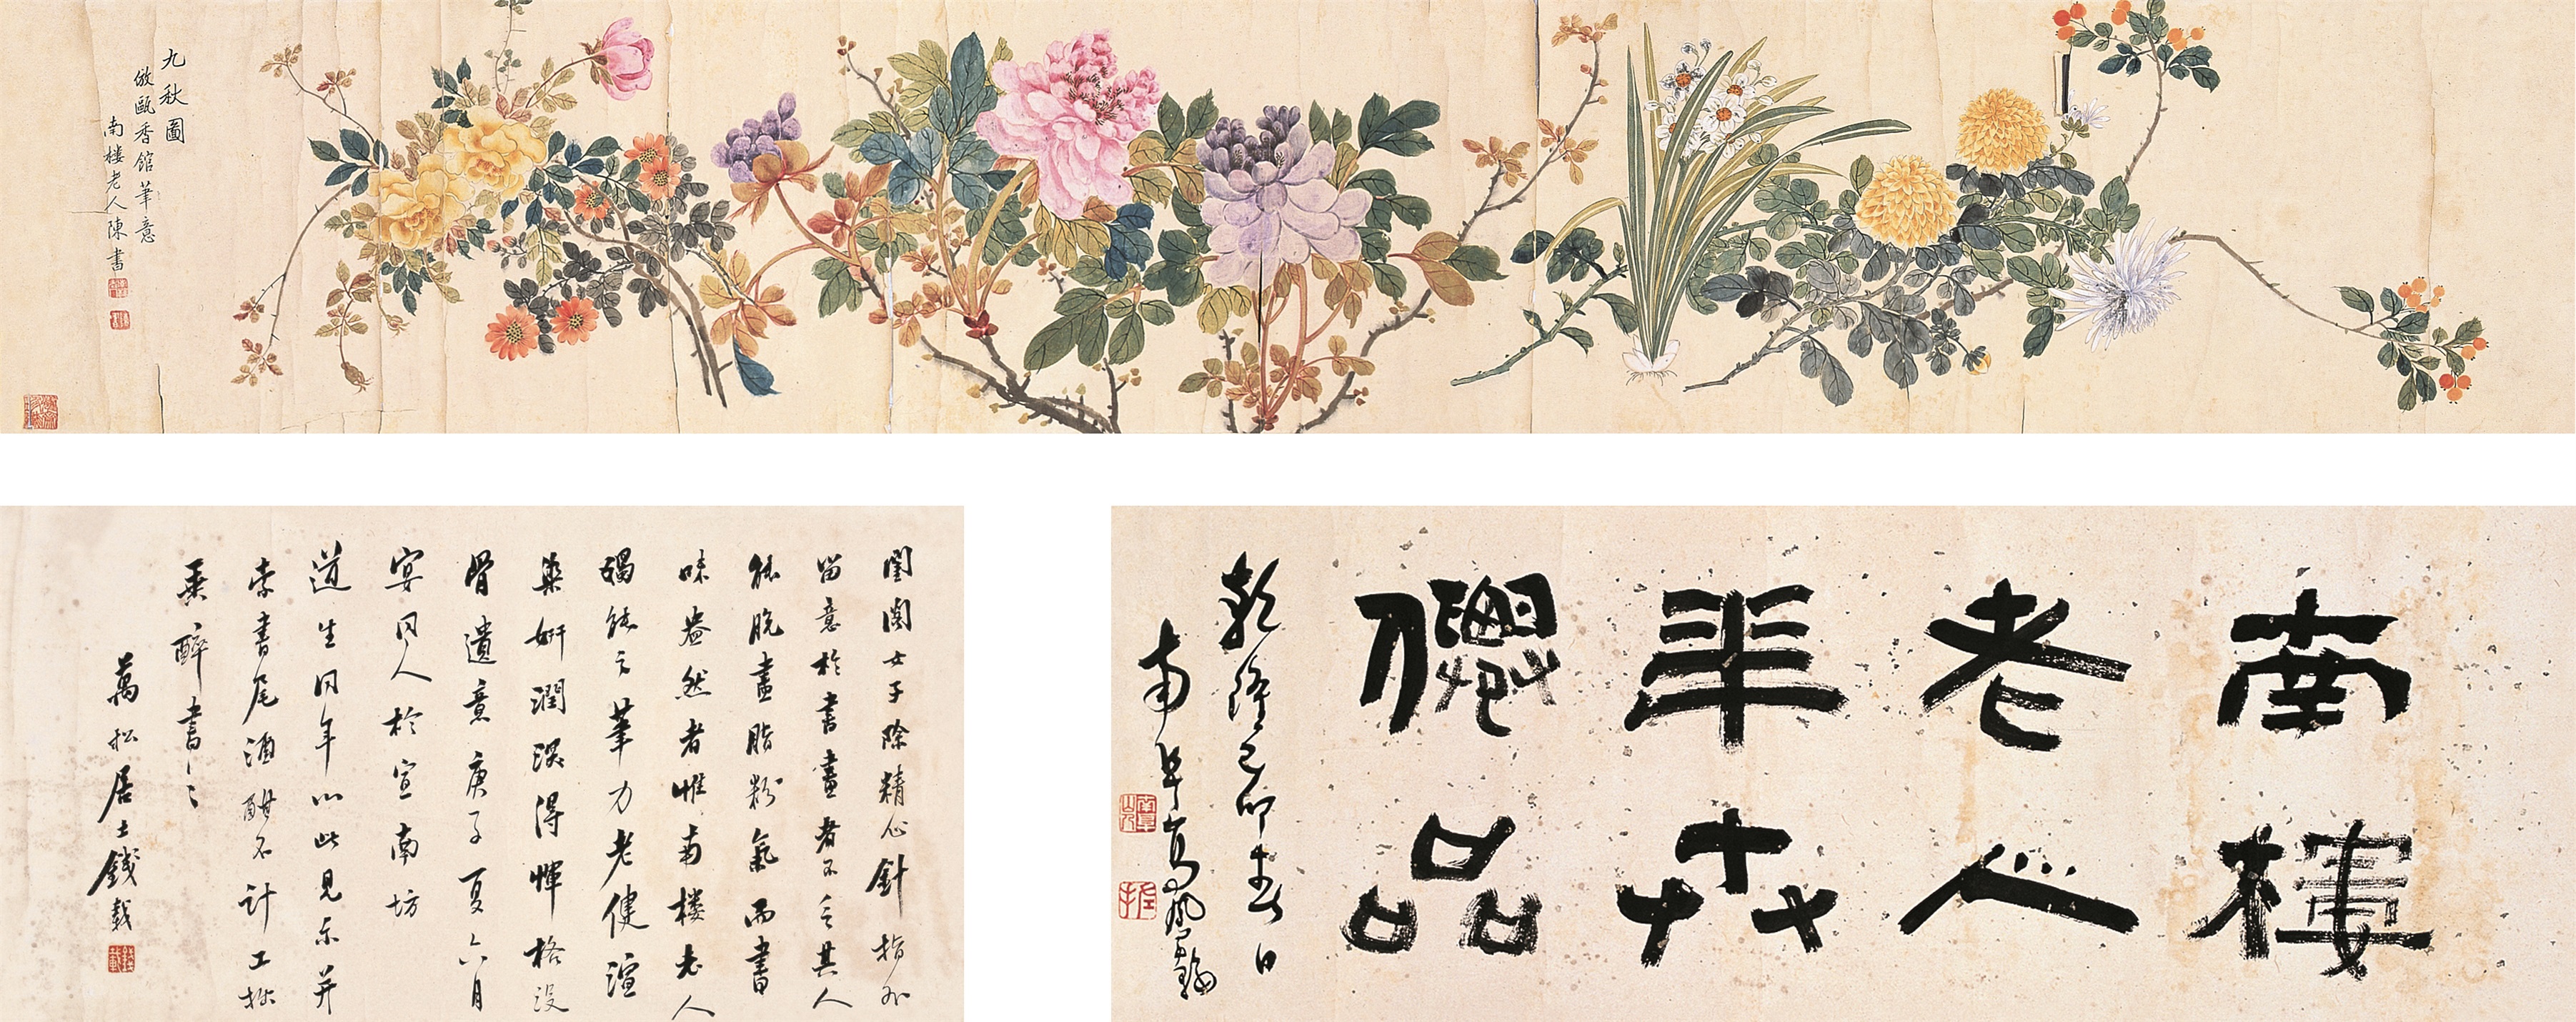 九秋圖
倣甌香館筆意
南樓老人陳書
南樓
老人
畢卉
儷品
乾隆己卯春日
南阜高鳳翰
閨閣女子除精心針指外
留意於書畫者不乏其人
能脫畫脂粉氣而書
味盎然者惟南樓老人
老人
筆力老健渲
染妍潤深得惲格沒
骨遺意庚子夏六月
宴同人於宣南坊
道生同年以此見示并
索書尾酒酣不計工拙
乘醉書之
萬松居士錢載